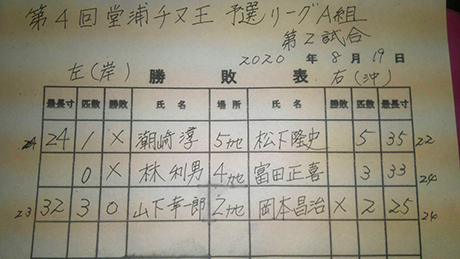 第4回堂浦チヌ王 予選リーグA組
第2試合
2020年8月19日
左(岸) 勝敗表 右(沖)
最長寸 匹数 勝敗 氏名 場所 氏名 勝敗 匹数 最長寸
24 24 1 × 潮崎淳 5カセ 松下隆史 5 35 22
0 × 林利男 4カセ 富田正喜 3 33 24
23 32 3 0 山下幸一郎 2カセ 岡本昌治 × 2 25 24